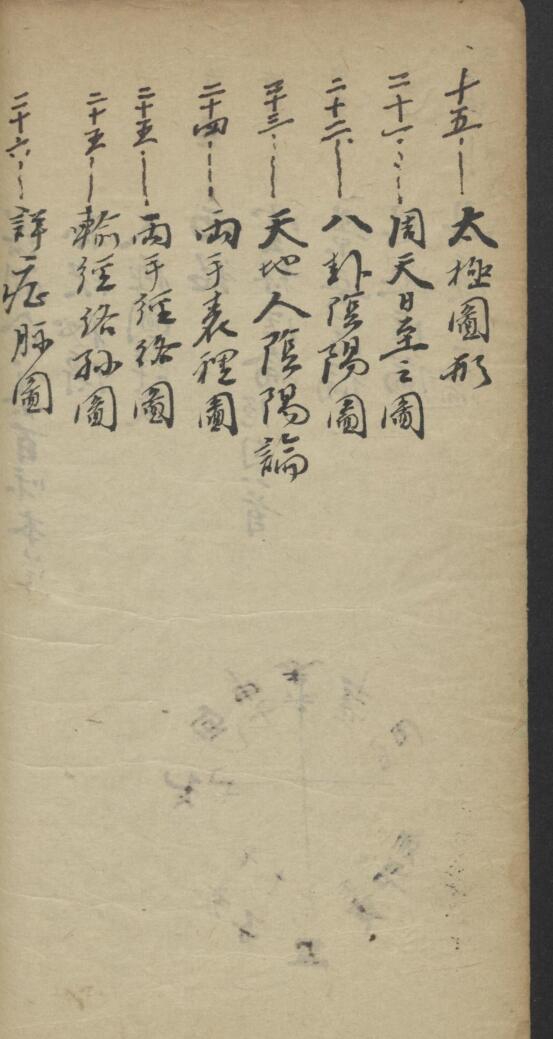 十五 太極圖形
二十一 周天日至之圖
二十二 八卦陰陽圖
二十三 天地人陰陽論
二十四 兩手表裡圖
二十五 兩手經絡圖
二十五 輸經络孙圖
二十六 詳症脉圖